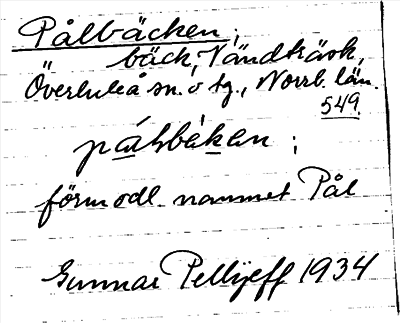 Pålbäcken,
bäck, Vändträsk,
Överluleå sn. o tg., Norrb. län.
549.
pålsbäken ;
förmodl. nammet Pål
Gunnar Pellijeff 1934